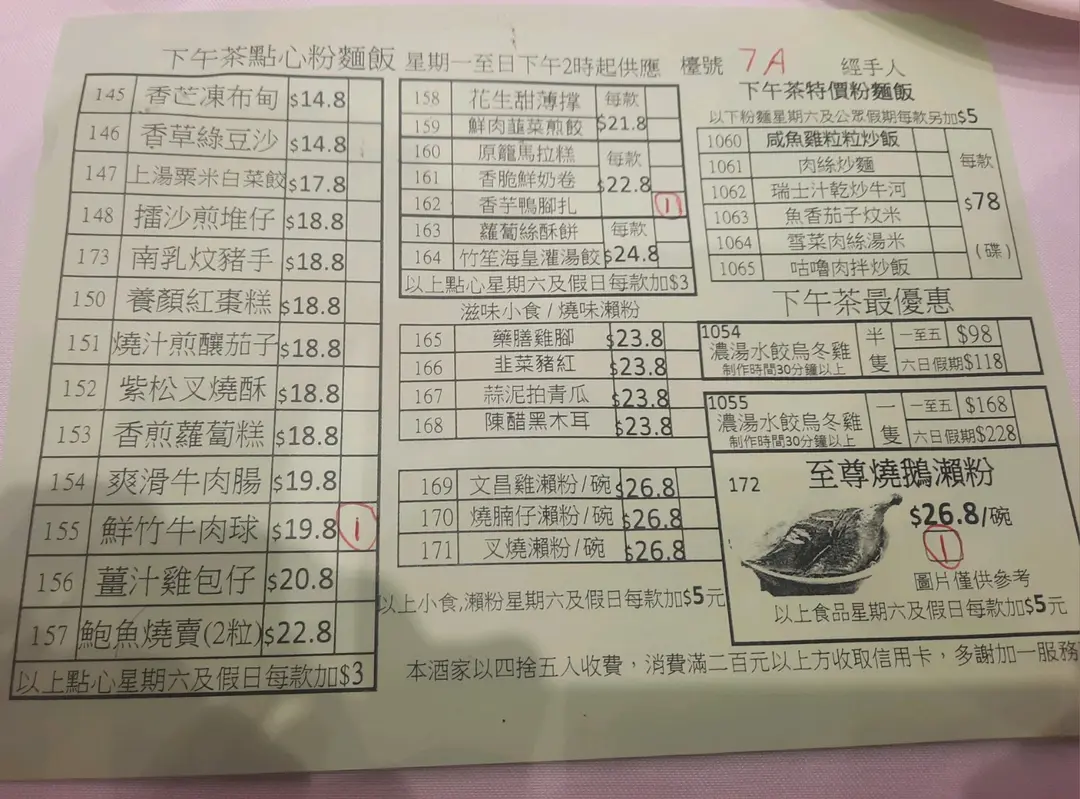 下午茶點心粉麵飯 星期一至日下午2時起供應 檯號 7A 經手人
145 香芒凍布甸 $14.8
146 香草綠豆沙 $14.8
147 上湯粟米白菜餃 $17.8
148 擂沙煎堆仔 $18.8
173 南乳炆豬手 $18.8
150 養顏紅棗糕 $18.8
151 燒汁煎釀茄子 $18.8
152 紫松叉燒酥 $18.8
153 香煎蘿蔔糕 $18.8
154 爽滑牛肉腸 $19.8
155 鮮竹牛肉球 $19.8 1
156 薑汁雞包仔 $20.8
157 鮑魚燒賣(2粒) $22.8
以上點心星期六及假日每款加$3
158 花生甜薄撐 每款
159 鮮肉韮菜煎餃 $21.8
160 原籠馬拉糕 每款
161 香脆鮮奶卷 $22.8
162 香芋鴨腳扎 1
163 蘿蔔絲酥餅 每款
164 竹笙海皇灌湯餃 $24.8
以上點心星期六及假日每款加$3
滋味小食/燒味瀨粉
165 藥膳雞腳 $23.8
166 韭菜豬紅 $23.8
167 蒜泥拍青瓜 $23.8
168 陳醋黑木耳 $23.8
169 文昌雞瀨粉/碗 $26.8
170 燒腩仔瀨粉/碗 $26.8
171 叉燒瀨粉/碗 $26.8
以上小食,瀨粉星期六及假日每款加$5元
下午茶特價粉麵飯
以下粉麵星期六及公眾假期每款另加$5
1060 咸魚雞粒粒炒飯
1061 肉絲炒麵
1062 瑞士汁乾炒牛河
1063 魚香茄子炆米
1064 雪菜肉絲湯米
1065 咕嚕肉拌炒飯
每款
$78
(碟)
下午茶最優惠
1054
濃湯水餃烏冬雞
制作時間30分鐘以上
半隻
一至五 $98
六日假期$118
1055
濃湯水餃烏冬雞
制作時間30分鐘以上
一隻
一至五 $168
六日假期$228
至尊燒鵝瀨粉
172
$26.8/碗
1
圖片僅供參考
以上食品星期六及假日每款加$5元
本酒家以四捨五入收費，消費滿二百元以上方收取信用卡，多謝加一服務